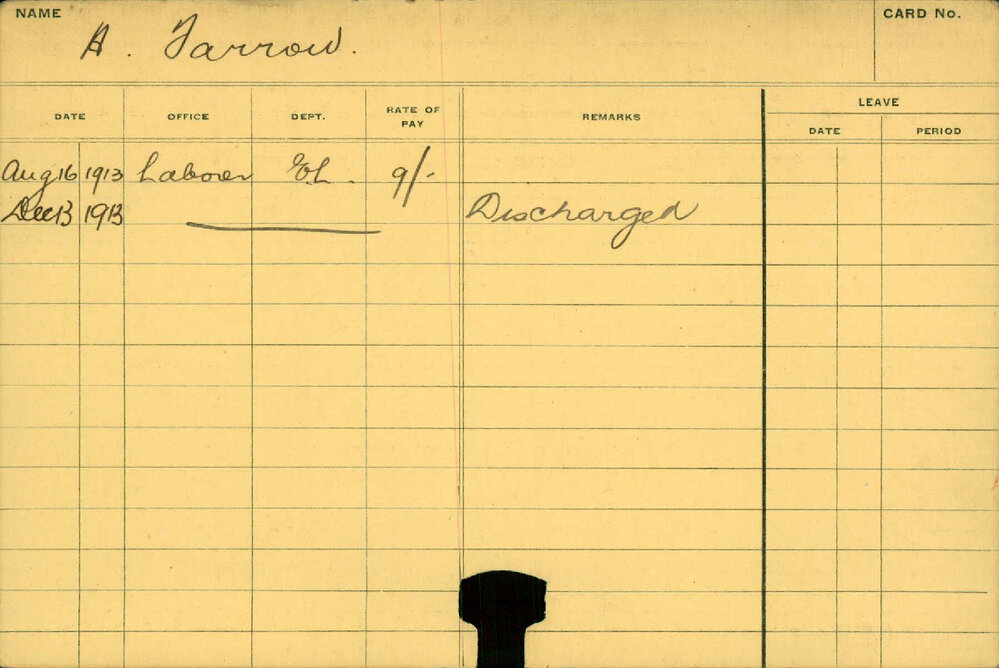 NAME
CARD No.
A. Farrow.
DATE OFFICE DEPT. RATE OF PAY REMARKS LEAVE
DATE PERIOD
Aug 16 1913 Laborer EL. 9/-
Dec 13 1913 Discharged